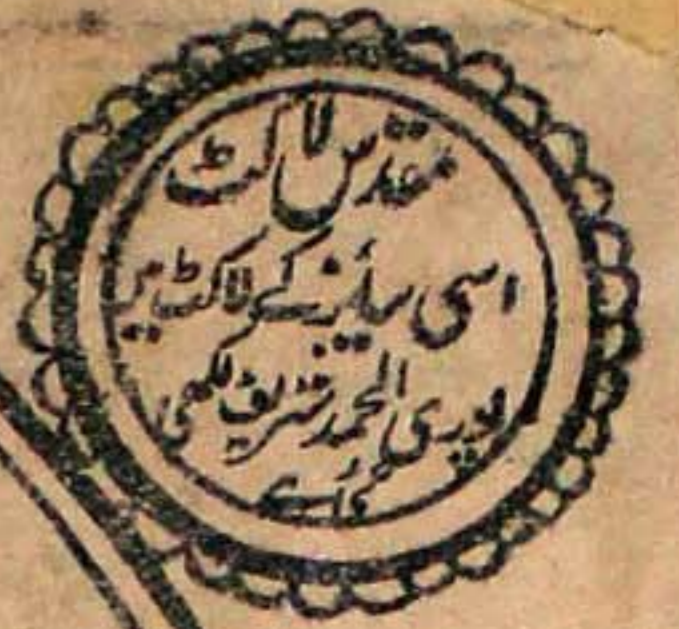 مقدس لاکٹ
اسی سائیز کے لاکٹ میں
پوری الحمد شریف لکھی
ہوئی ہے